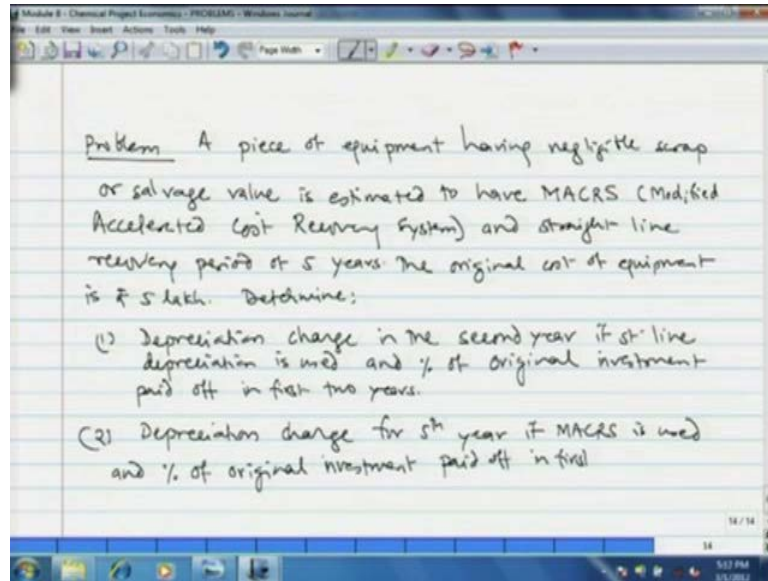 Module 8 - Chemical Project Economics - PROBLEMS - Windows Journal
File Edit View Insert Actions Tools Help
Page Width
Problem A piece of equipment having negligible scrap
or salvage value is estimated to have MACRS (Modified
Accelerated Cost Recovery System) and straight line
recovery period of 5 years. The original cost of equipment
is ₹ 5 lakh. Determine:
(1) Depreciation charge in the second year if st. line
depreciation is used and % of original investment
paid off in first two years.
(2) Depreciation charge for 5th year if MACRS is used
and % of original investment paid off in first
14 / 14
14
5:17 PM
3/1/2012